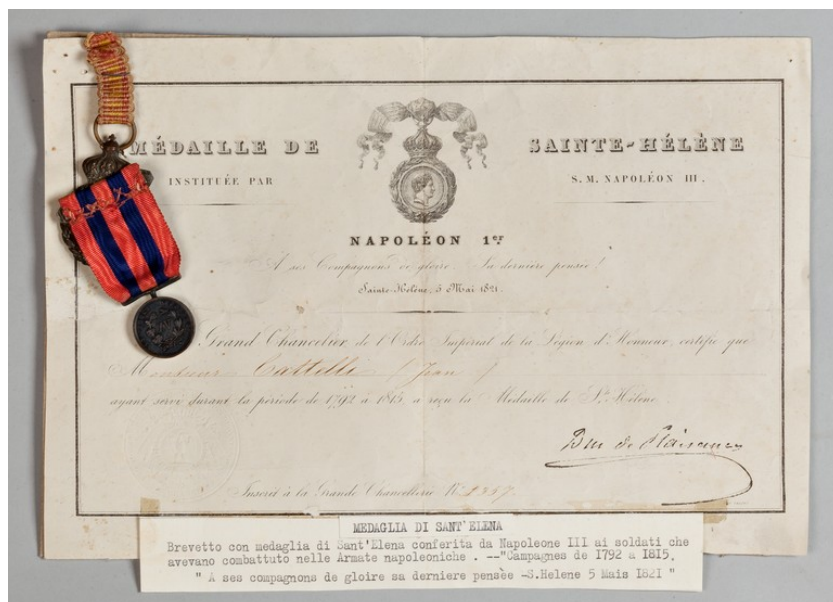 MÉDAILLE DE SAINTE-HÉLÈNE
INSTITUÉE PAR S. M. NAPOLÉON III.
NAPOLÉON 1er
A ses Compagnons de gloire Sa dernière pensée !
Sainte-Hélène, 5 Mai 1821.
Grand Chancelier de l'Ordre Impérial de la Légion d'Honneur certifie que
Monsieur Cattelli (Jean)
ayant servi durant la période de 1792 à 1815, a reçu la Médaille de Ste Hélène.
Duc de Plaisance
Inscrit à la Grande Chancellerie No
MEDAGLIA DI SANT'ELENA
Brevetto con medaglia di Sant'Elena conferita da Napoleone III ai soldati che
avevano combattuto nelle Armate napoleoniche . --"Campagnes de 1792 a 1815,
" A ses compagnons de gloire sa derniere pensèe -S.Helene 5 Mais 1821 "